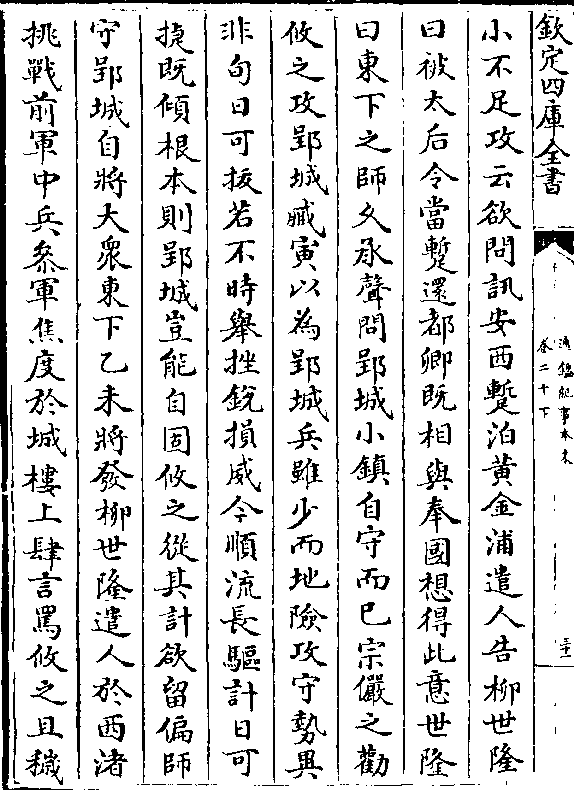 欽定四庫全書
通鑑紀事本末
卷二十下
三十一
小不足攻云欲問訊安西蹔泊黃金浦遣人告柳世隆
曰被太后令當蹔還都卿既相與奉國想得此意世隆
曰東下之師久承聲問郢城小鎮自守而已宗儼之勸
攸之攻郢城臧寅以為郢城兵雖少而地險攻守勢異
非旬日可拔若不時舉挫銳損威今順流長驅計日可
㨗既傾根本則郢城豈能自固攸之從其計欲留偏師
守郢城自將大衆東下乙未將發柳世隆遣人於西渚
挑戰前軍中兵叅軍焦度於城樓上肆言罵攸之且穢